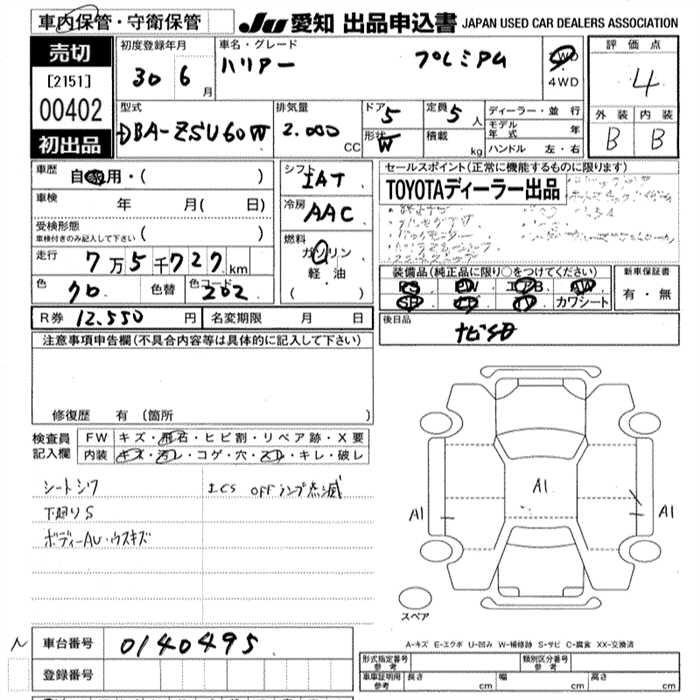 車内保管・守衛保管
JU 愛知 出品申込書 JAPAN USED CAR DEALERS ASSOCIATION
売切
[2151]
00402
初出品
初度登録年月
30 6 月
車名・グレード
ハリアー プレミアム
2WD
4WD
評価点
4
外装 内装
B B
型式
DBA-ZSU60W
排気量
2.000 CC
ドア 5
形状 W
定員 5 人
積載 kg
ディーラー・並行
モデル年式 年
ハンドル 左・右
車歴
自家用・( )
車検 年 月( 日)
受検形態
車検付きのみ記入して下さい ( )
走行 7万5千727km
色 クロ 色替 色コード 202
シフト
IAT
冷房
AAC
燃料
ガソリン
軽油
( )
セールスポイント(正常に機能するものに限ります)
TOYOTAディーラー出品
装備品(純正品に限り○をつけてください)
PS PW エアB AW
SR カワ TV カワシート
新車保証書
有・無
R券 12.550 円 名変期限 月 日
後日品
ナビSD
注意事項申告欄(不具合内容等は具体的に記入して下さい)
修復歴 有(箇所 )
検査員記入欄
FW キズ・飛石・ヒビ割・リペア跡・X要
内装 キズ・汚レ・コゲ・穴・スレ・キレ・破レ
シートシワ
ICS OFFランプ点滅
下廻りS
ボディーAU・ウスキズ
A1
A1
A1
スペア
A-キズ E-エクボ U-凹み W-補修跡 S-サビ C-腐食 XX-交換済
車台番号 0140495
登録番号
形式指定番号 参考
類別区分番号 参考
車車証明用 参考 長さ cm 幅 cm 高さ cm